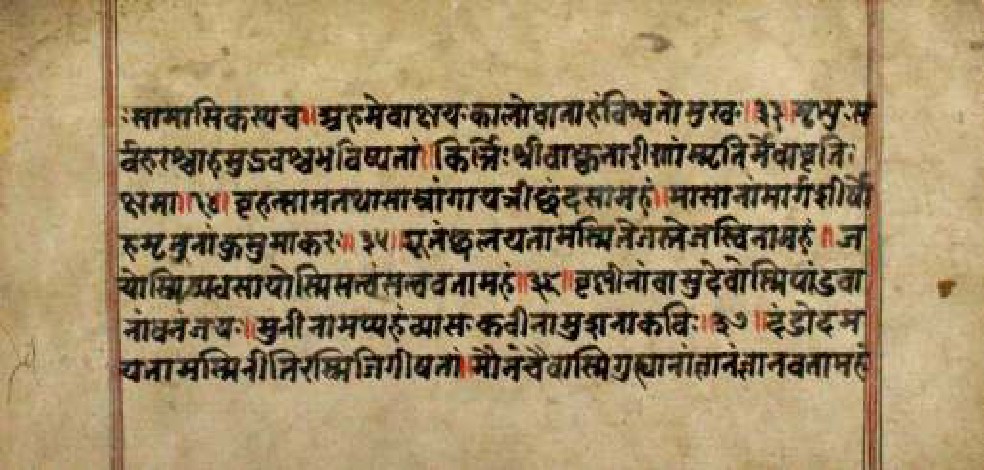 ःसामासिकस्यच॥अहमेवाक्षयःकालोधाताहंविश्वतोमुखः॥३३॥मृत्युःस
र्वहरश्चाहमुऽवश्चभविष्यतां॥किर्त्तिःश्रीवाक्चनारीणांस्मृतिर्मेधाधृतिः
क्षमा॥३४॥वृहत्सामतथासाम्नांगायत्रीछंदसामहं॥मासानांमार्गशीर्षो
हमृतुनांकुसुमाकरः॥३५॥द्यूतंछलयतामस्मितेजस्तेजस्विनामहं॥ज
योस्मिव्यवसायोस्मिसत्वंसत्ववतामहं॥३६॥वृष्णीनांवासुदेवोस्मिपांडवा
नांधनंजयः॥मुनीनामप्यहंव्यासःकवीनामुशनाकविः॥३७॥दंडोदम
यतामस्मिनीतिरस्मिजिगीषतां॥मौनंचैवास्मिगुह्यानांज्ञानंज्ञानवतामहं